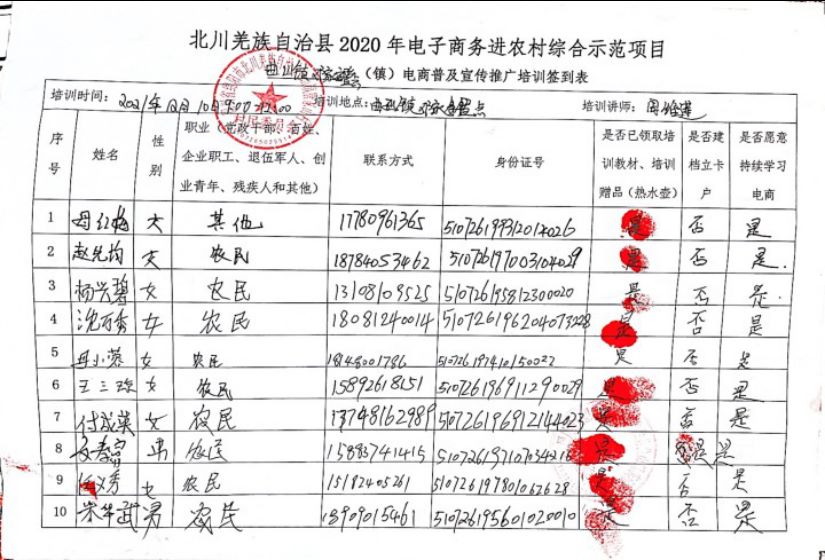 北川羌族自治县2020年电子商务进农村综合示范项目
(镇)电商普及宣传推广培训签到表
培训时间: 2021年12月10日9:00-12:00 培训地点: 培训讲师:
序号 姓名 性别 职业(党政干部、百姓、企业职工、退伍军人、创业青年、残疾人和其他) 联系方式 身份证号 是否已领取培训教材、培训赠品(热水壶) 是否建档立卡户 是否愿意持续学习电商
1 母红梅 女 其他 17780961365 是 否 是
2 赵先均 女 农民 18784053462 510726197003104029 是 否 是.
3 杨兴碧 女 农民 13108109525 510726195812300020 是 否 是.
4 沈万秀 女 农民 18081240014 是 否 是
5 母小蓉 女 农民 18148001786 510726197410150022 是 否 是
6 王三琼 女 农民 510726196911290029 是 否 是
7 付成英 女 农民 13748162989 510726196912144023 是 否 是
8 男 农民 15883741415 510726197107034216 是 是
9 女 农民 15182405261 510726197801062628 是 否 是
10 宋华武 男 农民 510726195601020010 是 否 是